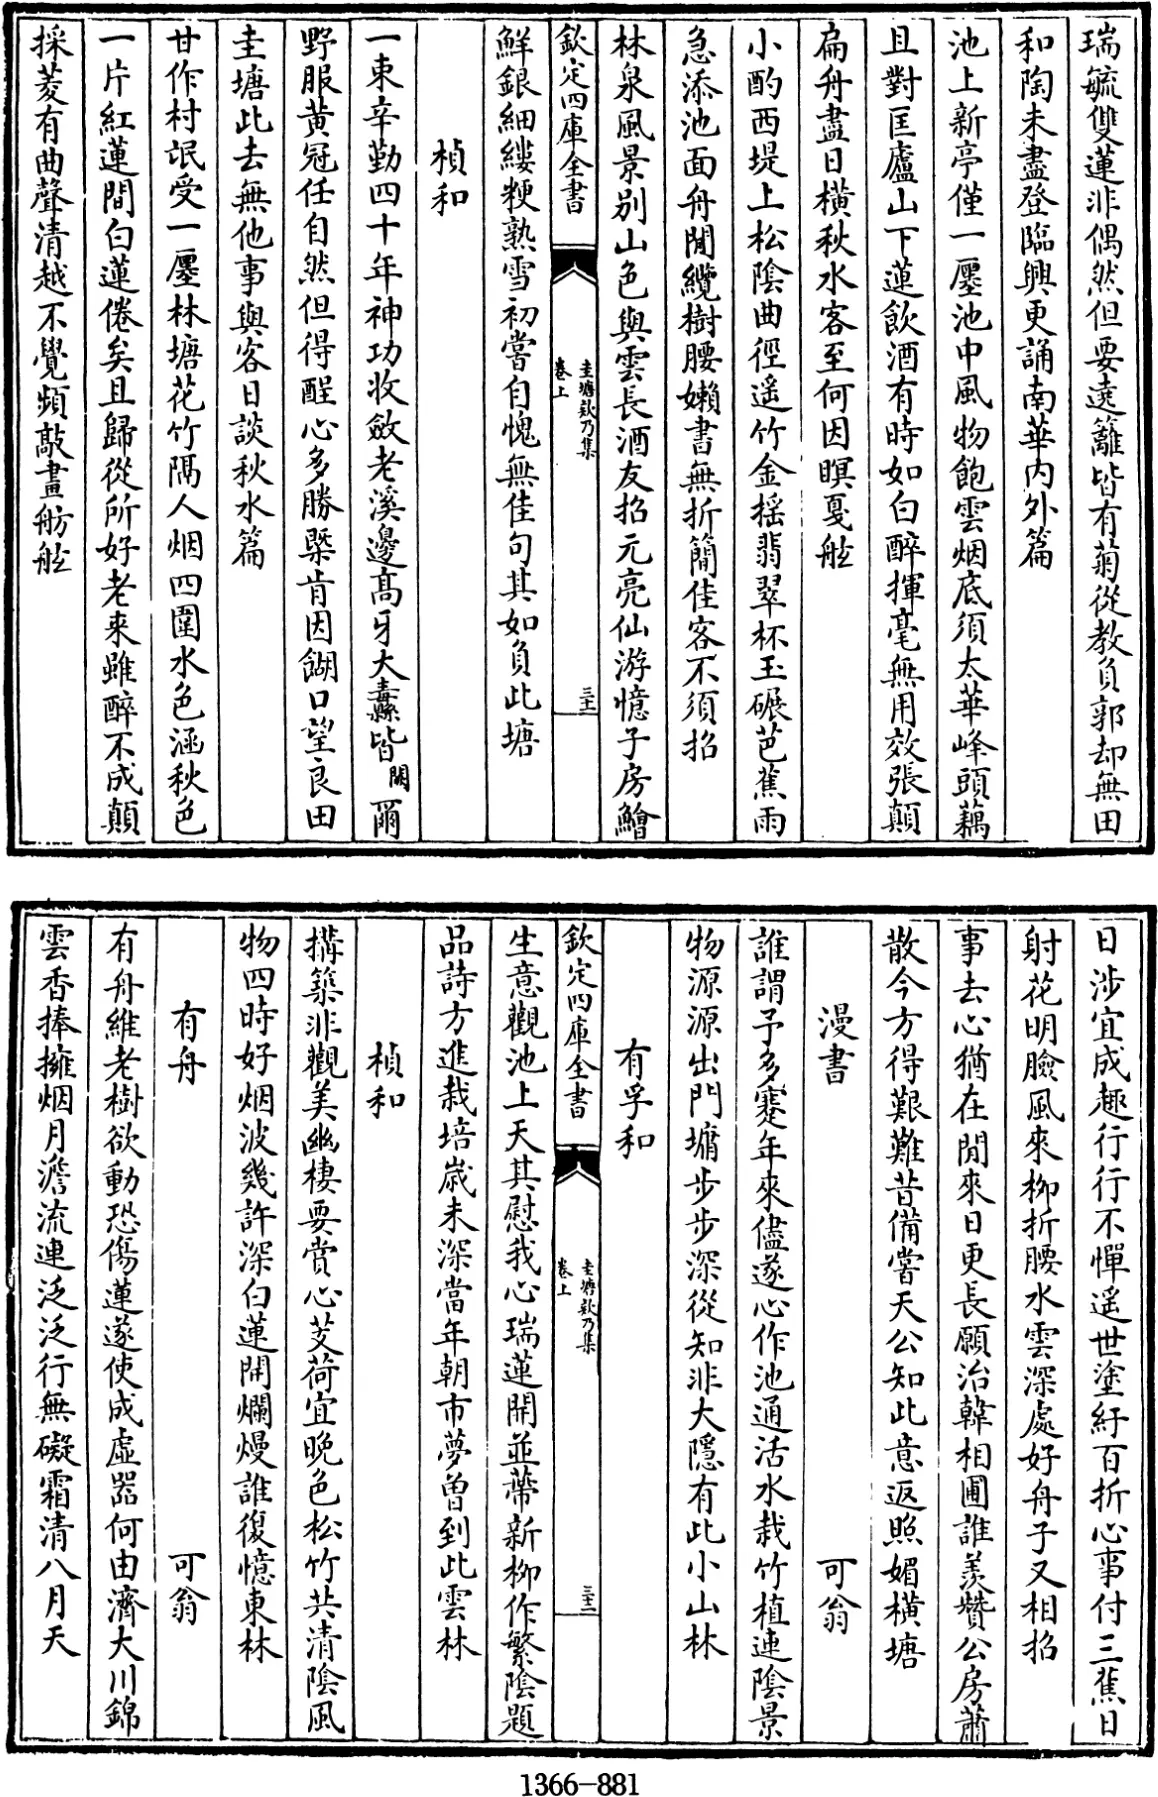 瑞毓雙蓮非偶然但要遠籬皆有菊從教負郭却無田
和陶未盡登臨興更誦南華内外篇
池上新亭僅一廛池中風物飽雲烟底須太華峰頭藕
且對匡廬山下蓮飲酒有時如白醉揮毫無用效張顛
扁舟盡日橫秋水客至何因暝戛舷
小酌西堤上松陰曲徑遥竹金揺翡翠杯玉碾芭蕉雨
急添池面舟閒纜樹腰嬾書無折簡佳客不須招
林泉風景别山色與雲長酒友招元亮仙游憶子房鱠
欽定四庫全書
圭塘欵乃集
卷上
三十一
鮮銀細縷粳熟雪初嘗自愧無佳句其如負此塘
楨和
一東辛勤四十年神功收斂老溪邊髙牙大纛皆闕爾
野服黄冠任自然但得酲心多勝槩肯因餬口望良田
圭塘此去無他事與客日談秋水篇
甘作村氓受一廛林塘花竹隔人烟四圍水色涵秋色
一片紅蓮間白蓮倦矣且歸從所好老来雖醉不成顛
採菱有曲聲清越不覺頻敲畫舫舷
日涉宜成趣行行不憚遥世塗紆百折心事付三蕉日
射花明臉風來栁折腰水雲深處好舟子又相招
事去心猶在閒來日更長願治韓相圃誰羨贊公房蕭
散今方得艱難昔備嘗天公知此意返照媚橫塘
漫書 可翁
誰謂予多蹇年來儘遂心作池通活水栽竹植連陰景
物源源出門墉步步深從知非大隱有此小山林
有孚和
欽定四庫全書
圭塘欵乃集
卷上
三十二
生意觀池上天其慰我心瑞蓮開並蔕新栁作繁陰題
品詩方進栽培歳未深當年朝市夢曽到此雲林
楨和
搆築非觀美幽棲要賞心芰荷宜晩色松竹共清陰風
物四時好烟波幾許深白蓮開爛熳誰復憶東林
有舟 可翁
有舟維老樹欲動恐傷蓮遂使成虛器何由濟大川錦
雲香捧擁烟月澹流連泛泛行無礙霜清八月天
1366-881